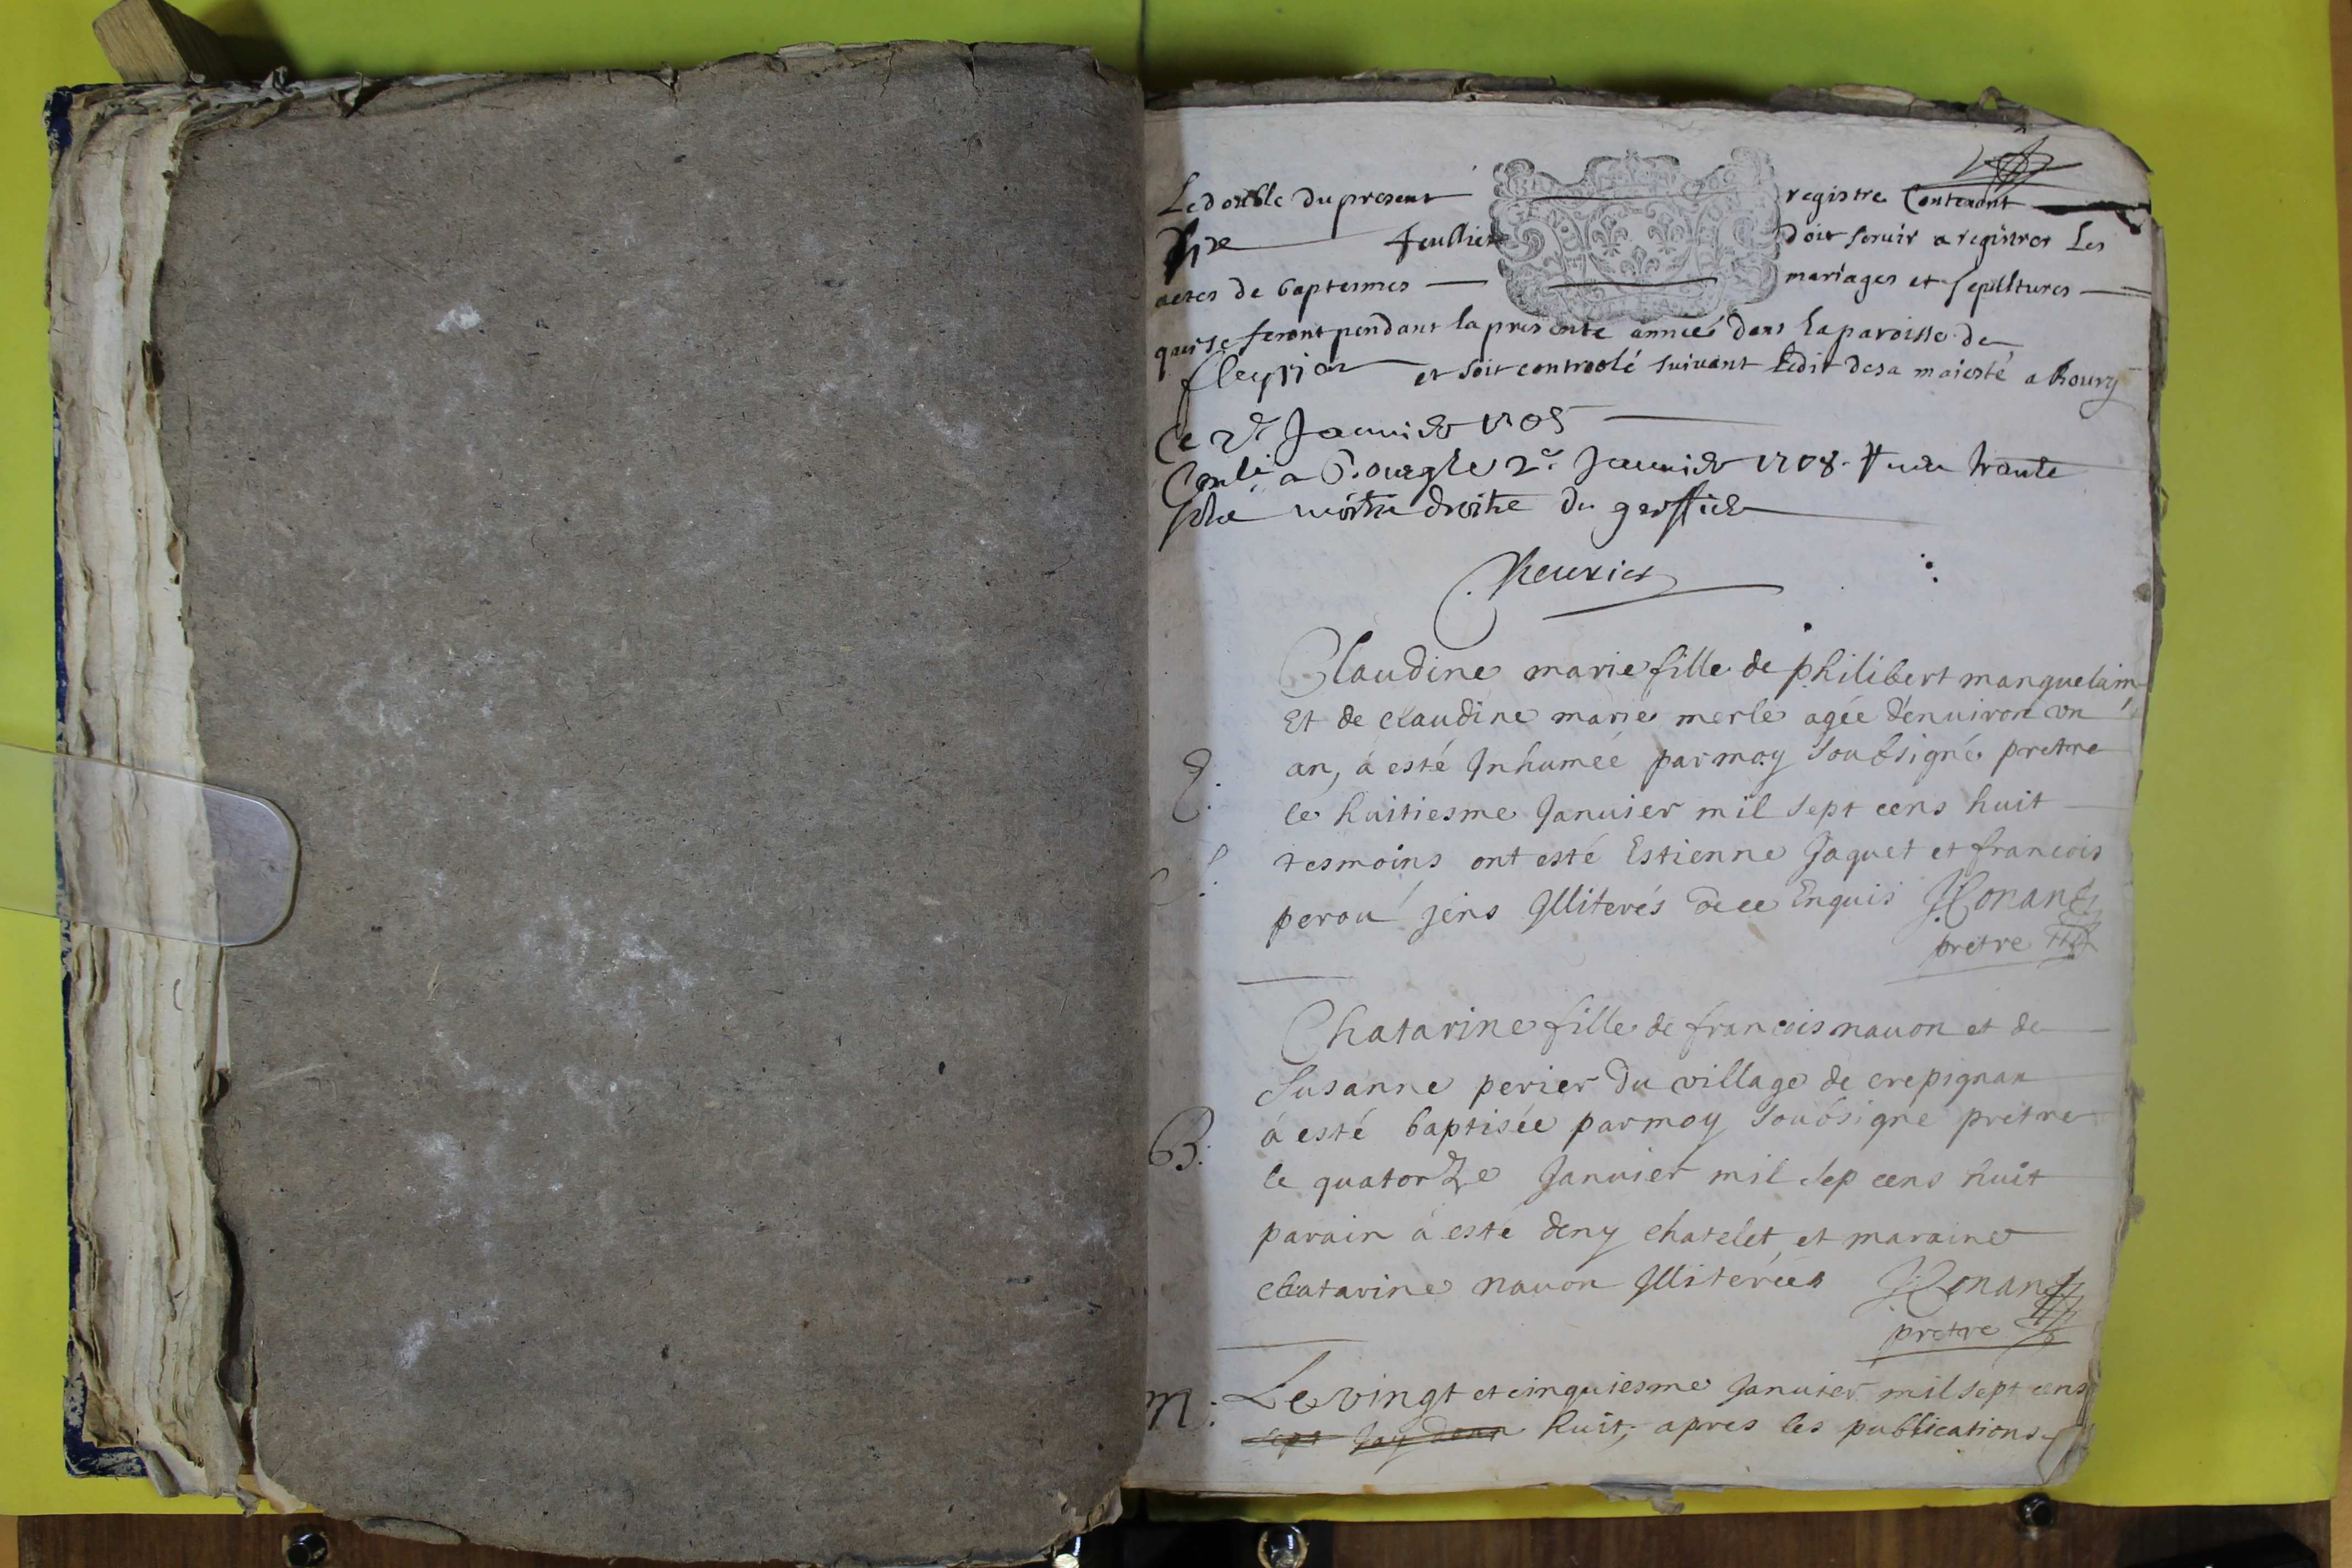 Le double du present registre Contenant
dix feuillets doit seruir a registrer Les
actes de baptesmes mariages et sepultures
qui se feront pendant la presente anneé dans la paroisse de
fleyriat et soit controolé suivant Ledit de sa maiesté a Bourg
Ce 2e Januier 1708
a Bourg le 2e Januier 1708
droitz du greffier
Claudine marie fille de philibert manguelain
Et de claudine marie merle agée d'enuiron vn
an, à esté Inhumeé par moy soubsigné pretre
le huitiesme Januier mil sept cens huit
S.
tesmoins ont esté Estienne Jaquet et francois
perou jens Illiterés de ce Enquis JConand
pretre
Chatarine fille de francois nauon et de
Susanne perier du village de crepignan
B. à esté baptisée par moy soubsigné pretre
le quatorze Januier mil sep cens huit
parain à esté deny chatelet, et maraine
chatarine nauon Illiterées JConand
pretre
m: Le vingt et cinquiesme Januier mil sept cens
sept huit; apres les publications